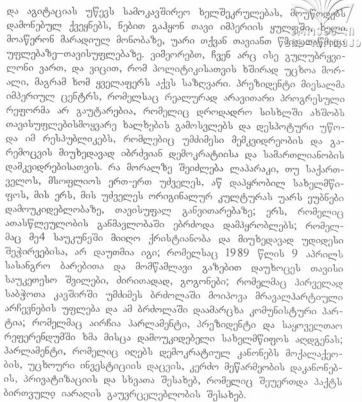 და აგიტაციას უწევს სამოკავშირეო ხელშეკრულებას, მოუწოდებს
დამონებულ ქვეყნებს, ნებით გაჰყონ თავი იმპერიის ყულფში,
მოაწერონ მარადიულ მონობაზე, უარი თქვან თავიანთ
უფლებაზე-თავისუფლებაზე. ვიმეორებთ, ჩვენ არც ისე გულუბრყვი-
ლონი ვართ, და ვიცით, რომ პოლიტიკისათვის ხშირად უცხოა მორ-
ალი, მაგრამ ხომ ყველაფერს აქვს საზღვარი. პრეზიდენტი მიესალმა
იმპერიულ ცენტრს, რომელსაც რეალურად არავითარი პროგრესული
რეფორმა არ გაუტარებია, რომელიც დროდადრო სისხლში ახშობს
თავისუფლებისმოყვარე ხალხების გამოსვლებს და დესპოტური უწო-
და იმ რესპუბლიკებს, რომლებიც უმძიმესი მემკვიდრეობის და გა-
რემოცვის მიუხედავად იბრძვიან დემოკრატიისა და სამართლიანობის
დამკვიდრებისათვის. რა მორალზე შეიძლება ლაპარაკი, თუ საქართ-
ველოს, მსოფლიოს ერთ-ერთ უძველეს, აწ დაპყრობილ სახელმწი-
ფოს, მის ერს, მის უძველეს ორიგინალურ კულტურას უარს ეუბნები
დამოუკიდებლობაზე, თავისუფალ განვითარებაზე; ერს, რომელიც
ათასწლეულობის განმავლობაში ებრძოდა დამპყრობლებს; რომელ-
მაც მე4 საუკუნეში მიიღო ქრისტიანობა და მიუხედავად უდიდესი
შეჭირვებისა, არ დაუთმია იგი; რომელსაც 1989 წლის 9 აპრილს
სასანგრო ბარებითა და მომწამლავი გაზებით დაუხოცეს თავისი
საუკეთესო შვილები, ძირითადად, გოგონები; რომელმაც პირველად
საბჭოთა კავშირში უმძიმეს ბრძოლაში მოიპოვა მრავალპარტიული
არჩევნების უფლება და ამ ბრძოლაში დაამარცხა კომუნისტური პარ-
ტია; რომელმაც აირჩია პარლამენტი, პრეზიდენტი და საყოველთაო
რეფერენდუმში ხმა მისცა დამოუკიდებელი სახელმწიფოს აღდგენას;
პარლამენტი, რომელიც იღებს დემოკრატიულ კანონებს მოქალაქეო-
ბის, უცხოური ინვესტიციის დაცვის, კერძო მეწარმეობის დაკანონებ-
ის, პრივატიზაციის და სხვათა შესახებ, რომელიც შეუერთდა პაქტს
ბირთვულ იარაღის გაუვრცელებლობის შესახებ.